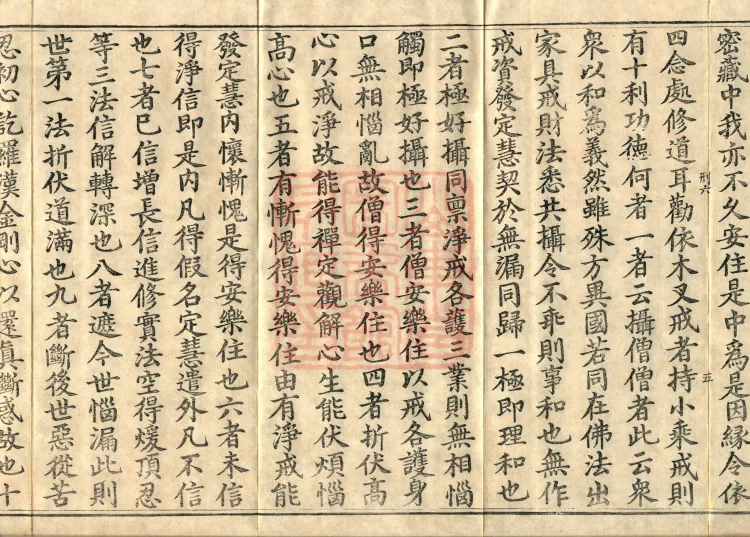 密藏中我亦不久安住是中爲是因緣令依
四念處修道耳勸依木叉戒者持小乘戒則
刑六
五
有十利功德何者一者云攝僧僧者此云衆
衆以和爲義然雖殊方異國若同在佛法出
家具戒財法悉共攝令不乖則事和也無作
戒資發定慧契於無漏同歸一極即理和也
二者極好攝同禀淨戒各護三業則無相惱
觸即極好攝也三者僧安樂住以戒各護身
口無相惱亂故僧得安樂住也四者折伏高
心以戒淨故能得禪定觀解心生能伏煩惱
高心也五者有慚愧得安樂住由有淨戒能
發定慧内懷慚愧是得安樂住也六者未信
得淨信即是内凡得假名定慧遣外凡不信
也七者已信增長信進修實法空得煖頂忍
等三法信解轉深也八者遮今世惱漏此則
世第一法折伏道滿也九者斷後世惡從苦
忍初心訖羅漢金剛心以還眞斷惑故也十